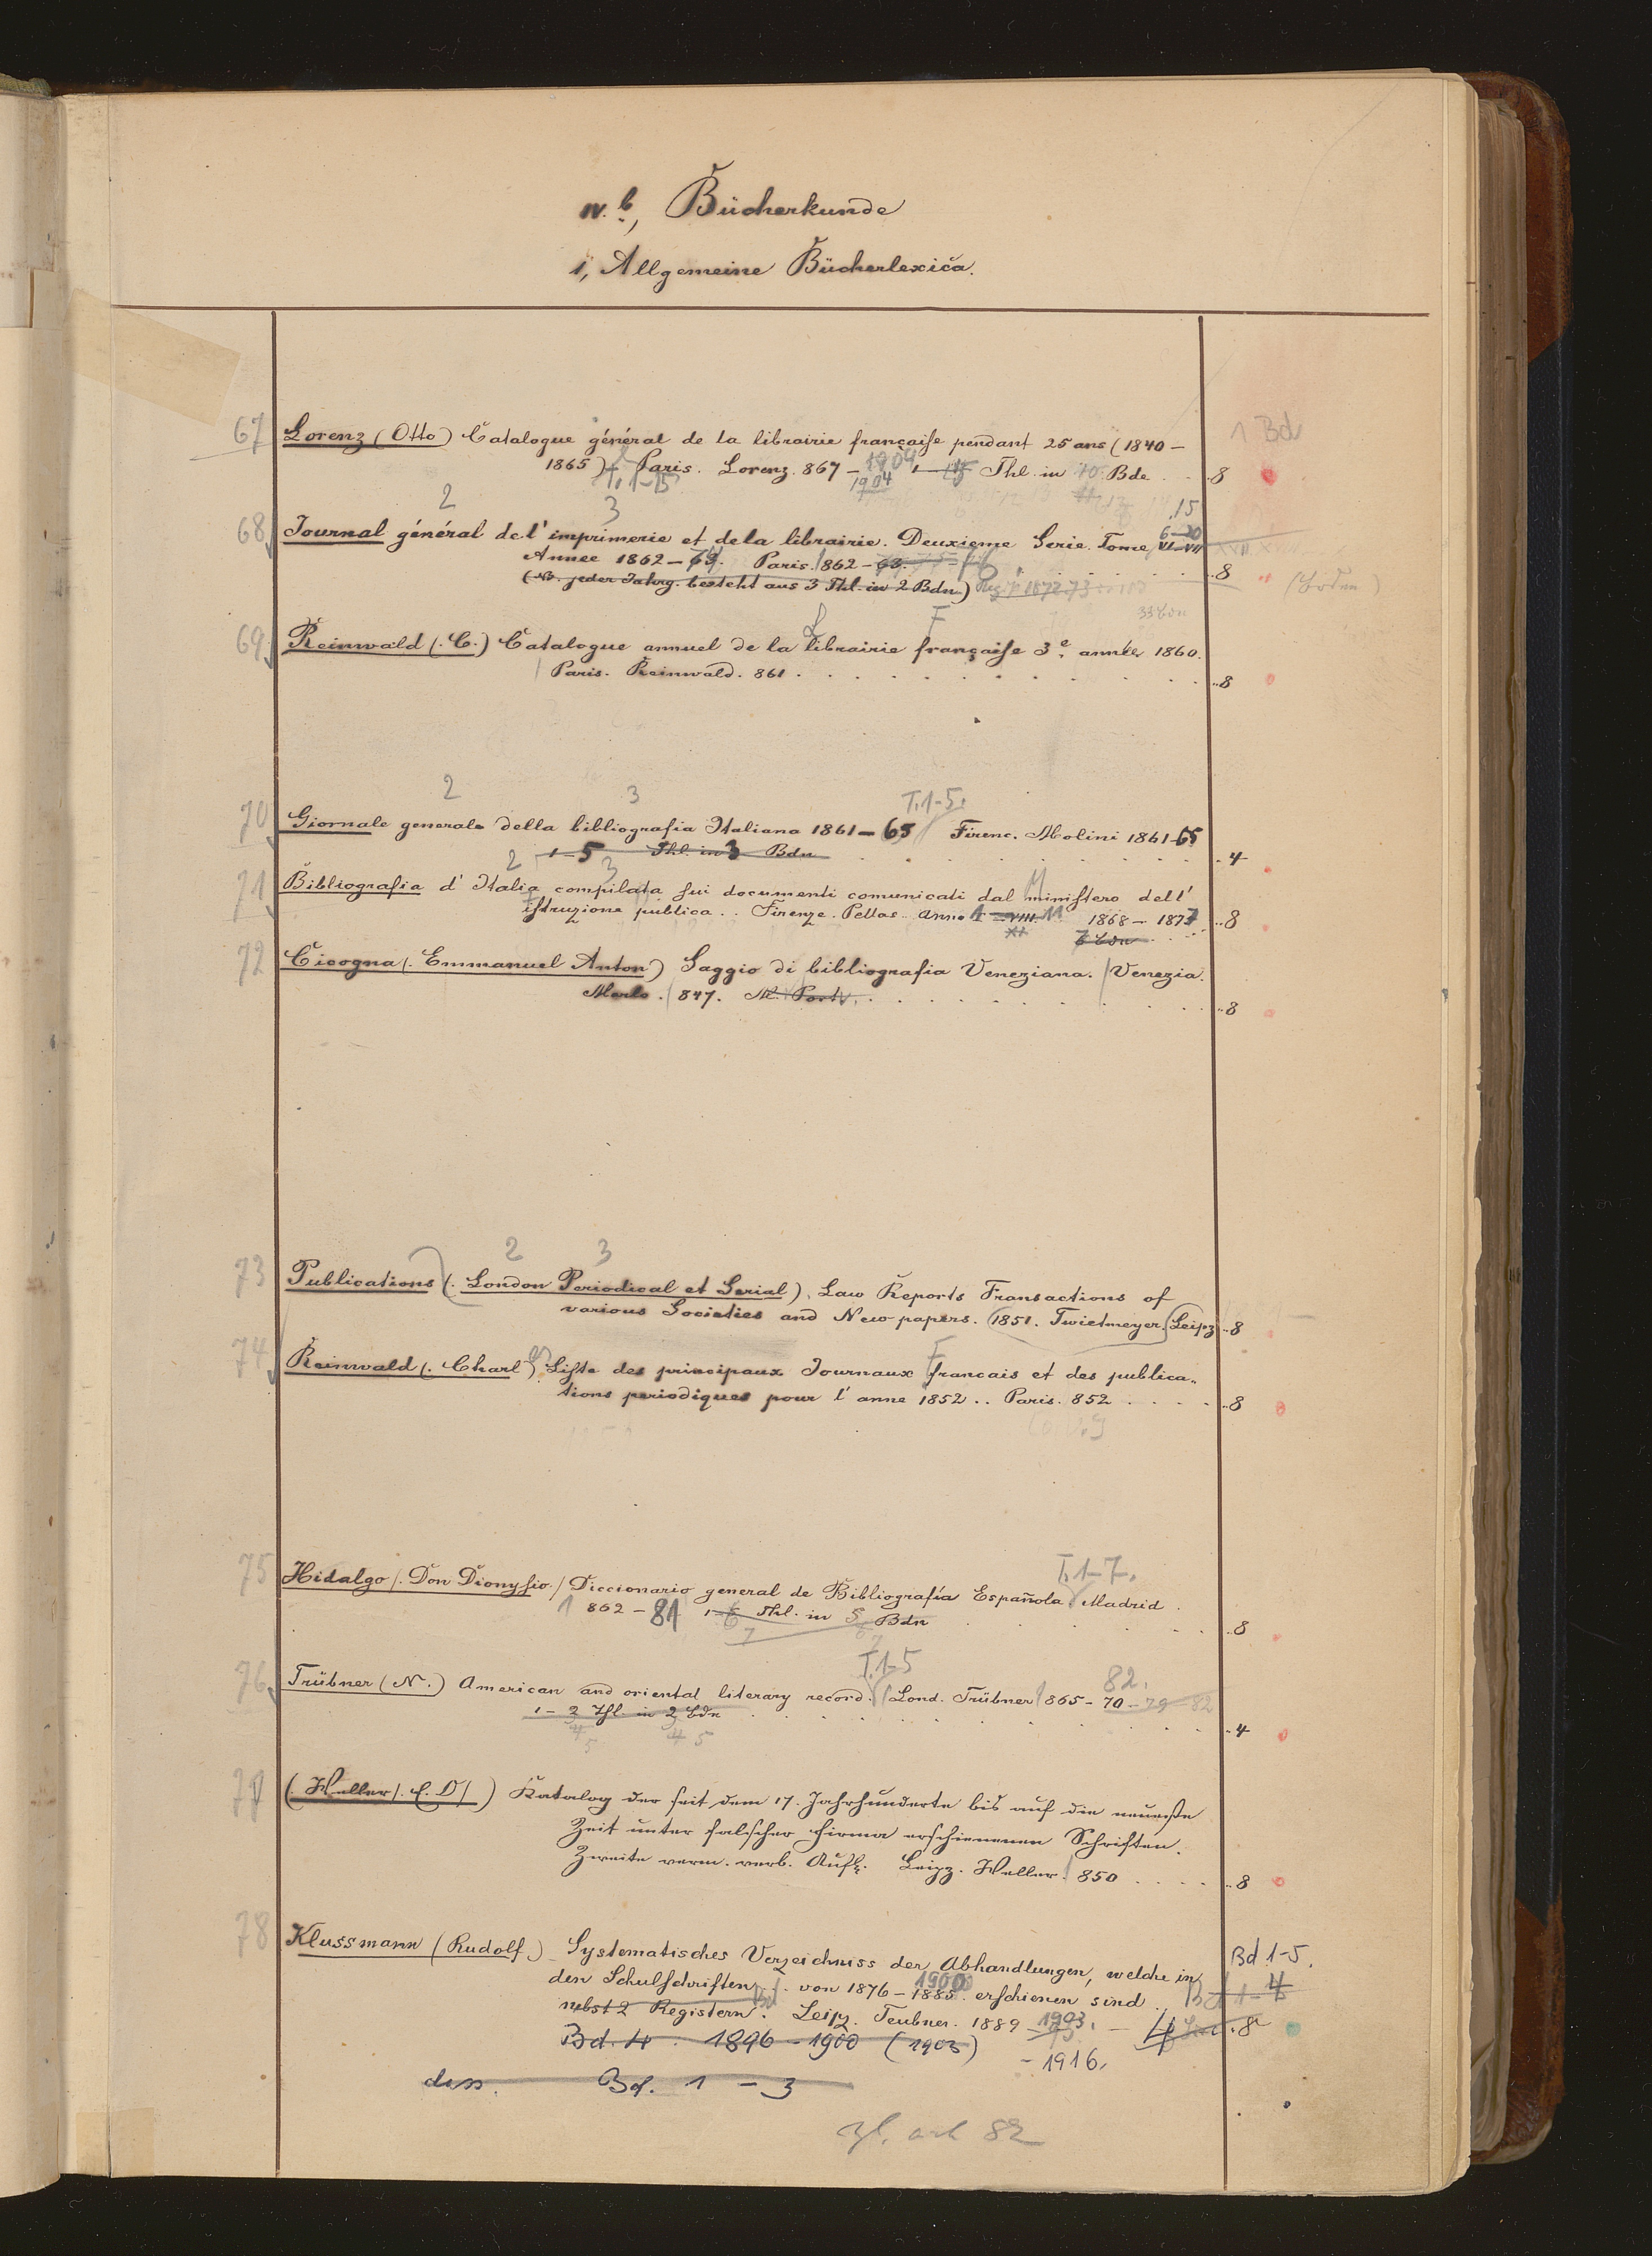 IV. b, Bücherkunde
1, Allgemeine Bücherlexica.
1 Bd
67 Lorenz (Otto) Catalogue général de la librairie françaiſe pendant 25 ans (1840 –
1865) Paris. Lorenz. 867 – 1904 Thl. in 10 Bde . . 8
T. 1-15
2 3 15
68 Journal général de l'imprimerie et de la librairie. Deuxieme Serie. Tome VI–VII
6–20
Annee 1862 – Paris. 1862 – 8
(NB. jeder Jahrg. besteht aus 3 Thl. in 2 Bdn)
69 Reinwald (. C.) Catalogue annuel de la librairie françaiſe 3e. année 1860.
Paris. Reinwald. 861 . . . . 8
2 3 T. 1-5.
70 Giornale generale della bibliografia Italiana 1861 – 65 Firenc. Molini 1861-65
1–5 Thl. in 3 Bdn . . . . 4
2 3
71 Bibliografia d' Italia compilata ſui documenti comunicati dal miniſtero dell'
iſtruzione publica . . Firenze. Pellas. anno 1 – VIII 11 1868 – 1877 . . 8
XI
72 Cicogna (. Emmanuel Anton) Saggio di bibliografia Veneziana. Venezia.
Merlo. 847. M. Portr. . . . . 8
2 3
73 Publications (. London Periodical et Serial). Law Reports Transactions of
various Societies and New papers. (1851. Twietmeyer. Leipz . . 8
74 Reinwald (. Charl) Liſte des principaux Journaux francais et des publica„
tions periodiques pour l' anne 1852 . . Paris. 852 . . . . 8
T. 1-7.
75 Hidalgo (. Don Dionyſio.) Diccionario general de Bibliografía Española. Madrid.
1862 – 81 Thl. in Bdn . . . . 8
7
T. 1-5 82.
76 Trübner (N.) American and oriental literary record. Lond. Trübner 1865 – 70 – 79 82
1 – 2 Thl. in 2 Bdn . . . . 4
4 5 4 5
77 (Weller (. E. D) ) Katalog der ſeit dem 17. Jahrhunderte bis auf die neueſte
Zeit unter falſcher Firma erſchienenen Schriften.
Zweite verm. verb. Aufl. Leipz. Weller. 850 . . . . 8
78 Klussmann (Rudolf.) Systematisches Verzeichniss der Abhandlungen, welche in
Bd 1-5.
den Schulſchriften von 1876 – 1885. 1900 erſchienen sind. Bd 1-4
nebst 2 Registern. Leipz. Teubner. 1889 1903. – 8
Bd. 4. 1896 – 1900 (1903) – 1916.
dess. Bd. 1 – 3